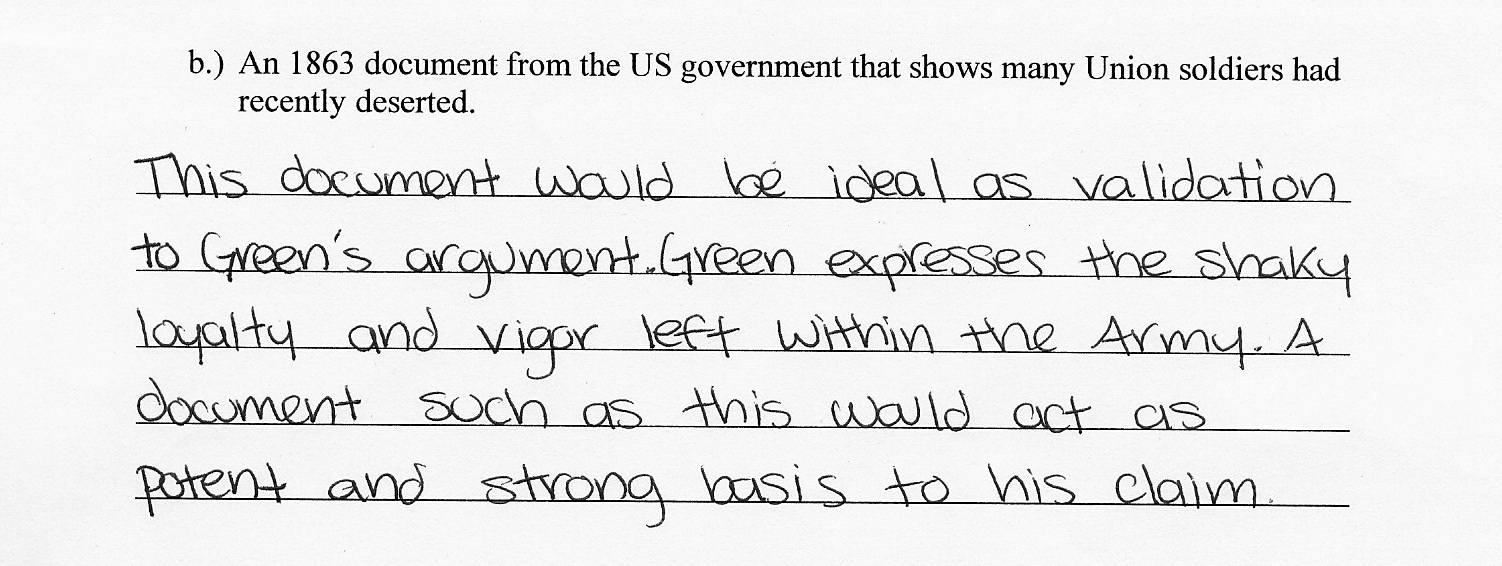 b.) An 1863 document from the US government that shows many Union soldiers had
recently deserted.
This document would be ideal as validation
to Green's argument. Green expresses the shaky
loyalty and vigor left within the Army. A
document such as this would act as
potent and strong basis to his claim.